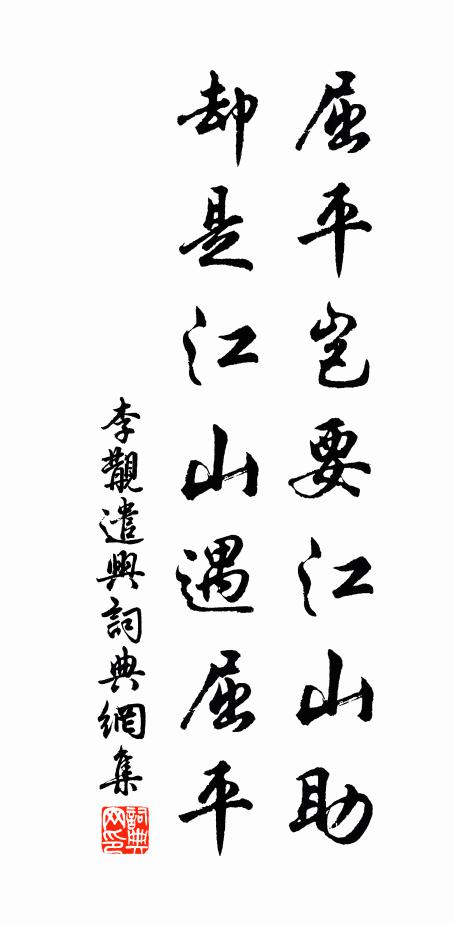 屈平豈要江山助
却是江山遇屈平
李覯遣興詞典網集
詞典
网印